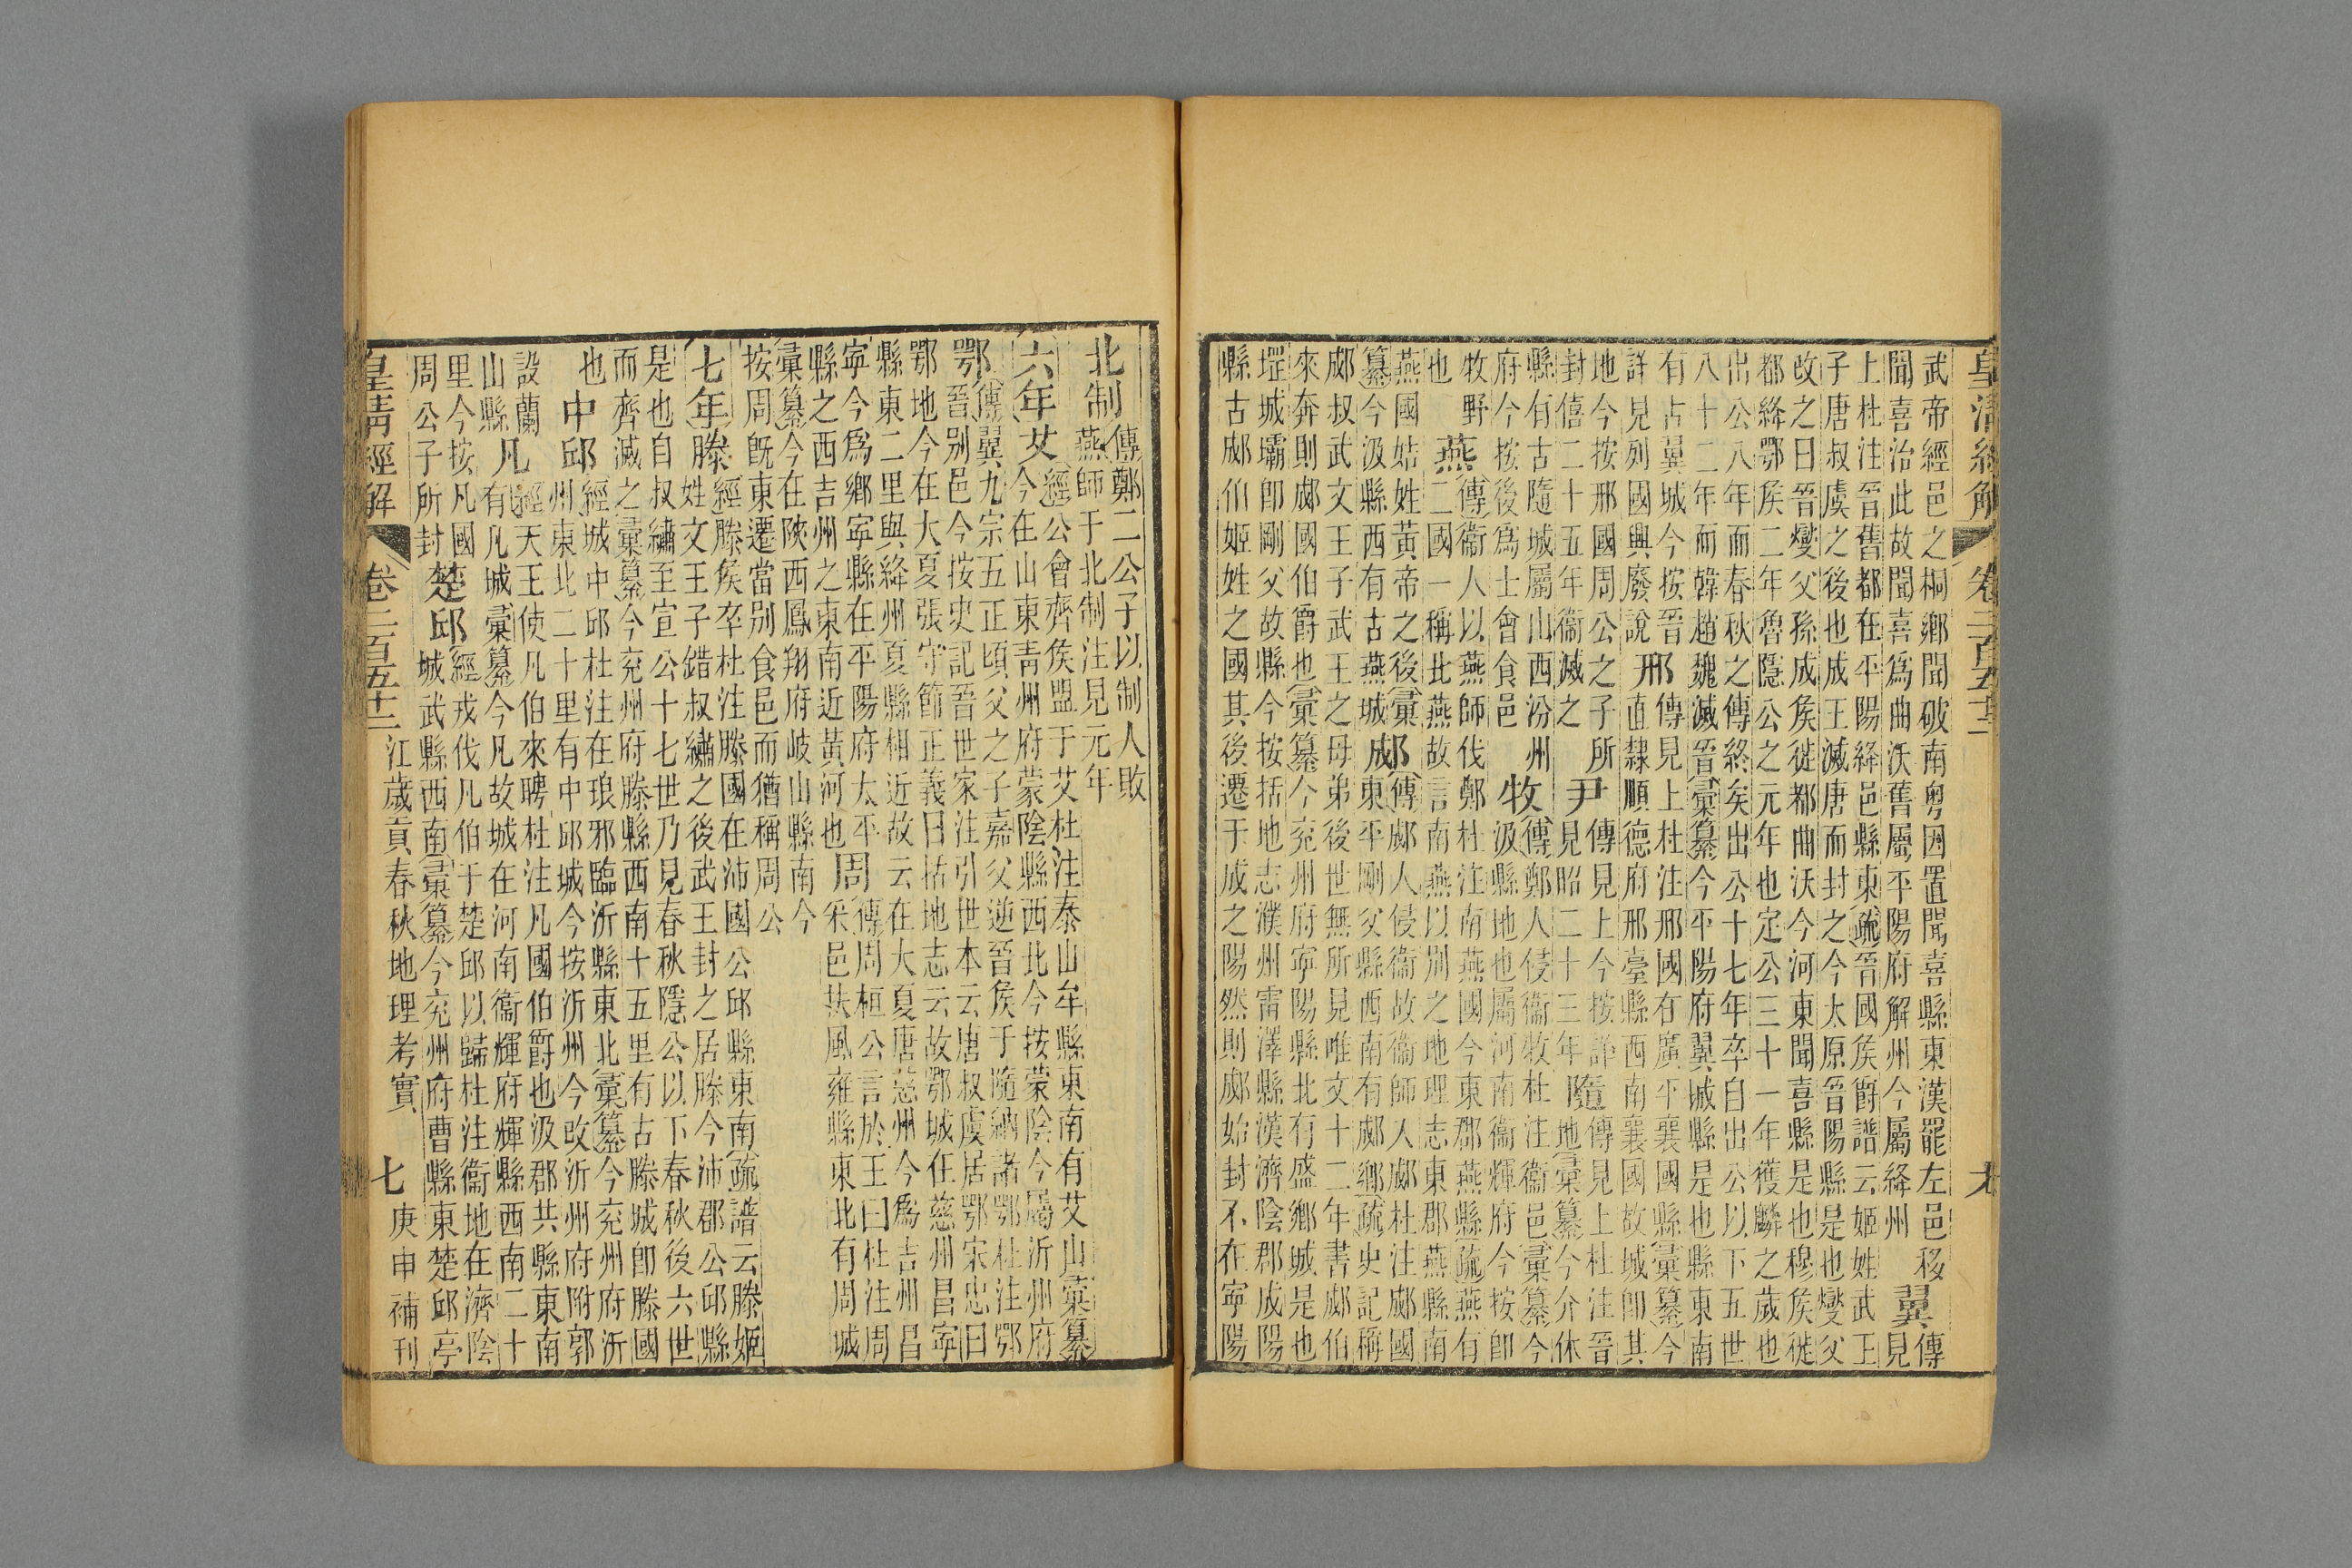 皇清經解
卷二百五十二
武帝經邑之桐鄉聞破南粵因置聞喜縣東漢罷左邑移
聞喜治此故聞喜爲曲沃舊屬平陽府解州今屬絳州
翼
傳見
上杜注晉舊都在平陽絳邑縣東疏晉國侯爵譜云姬姓武王
子唐叔虞之後也成王滅唐而封之今太原晉陽縣是也燮父
改之曰晉燮父孫成侯徙都曲沃今河東聞喜縣是也穆侯徙
都絳鄂侯二年魯隱公之元年也定公三十一年獲麟之歲也
出公八年而春秋之傳終矣出公十七年卒自出公以下五世
八十二年而韓趙魏滅晉彙纂今平陽府翼城縣是也縣東南
有古翼城今按晉
詳見列國興廢說
邢
傳見上杜注邢國在廣平襄國縣彙纂今
直隸順德府邢臺縣西南襄國故城卽其
地今按邢國周公之子所
封僖二十五年衞滅之
尹
傳見上今按詳
見昭二十三年
隨
傳見上杜注晉
地彙纂今介休
縣有古隨城屬山西汾州
府今按後爲士會食邑
牧
傳鄭人侵衞牧杜注衞邑彙纂今
汲縣地也屬河南衞輝府今按卽
牧野
也
燕
傳衞人以燕師伐鄭杜注南燕國今東郡燕縣疏燕有
二國一稱北燕故言南燕以別之地理志東郡燕縣南
燕國姞姓黃帝之後彙
纂今汲縣西有古燕城
郕
傳郕人侵衞故衞師入郕杜注郕國
東平剛父縣西南有郕鄉疏史記稱
郕叔武文王子武王之母弟後世無所見唯文十二年書郕伯
來奔則郕國伯爵也彙纂今兗州府寧陽縣北有盛鄉城是也
堽城壩卽剛父故縣今按括地志濮州雷澤縣漢濟陰郡成陽
縣古郕伯姬姓之國其後遷于成之陽然則郕始封不在寧陽
北制
傳鄭二公子以制人敗
燕師于北制注見元年
六年艾
經公會齊侯盟于艾杜注泰山牟縣東南有艾山彙纂
今在山東青州府蒙陰縣西北今按蒙陰今屬沂州府
鄂
傳翼九宗五正頃父之子嘉父逆晉侯于隨納諸鄂杜注鄂
晉別邑今按史記晉世家注引世本云唐叔虞居鄂宋忠曰
鄂地今在大夏張守節正義曰括地志云故鄂城在慈州昌寧
縣東二里與絳州夏縣相近故云在大夏唐慈州今爲吉州昌
寧今爲鄉寧縣在平陽府太平
縣之西吉州之東南近黃河也
周
傳周桓公言於王曰杜注周
采邑扶風雍縣東北有周城
彙纂今在陝西鳳翔府岐山縣南今
按周旣東遷當別食邑而猶稱周公
七年滕
經滕侯卒杜注滕國在沛國公邱縣東南疏譜云滕姬
姓文王子錯叔繡之後武王封之居滕今沛郡公邱縣
是也自叔繡至宣公十七世乃見春秋隱公以下春秋後六世
而齊滅之彙纂今兗州府滕縣西南十五里有古滕城卽滕國
也
中邱
經城中邱杜注在琅邪臨沂縣東北彙纂今兗州府沂
州東北二十里有中邱城今按沂州今改沂州府附郭
設蘭
山縣
凡
經天王使凡伯來聘杜注凡國伯爵也汲郡共縣東南
有凡城彙纂今凡故城在河南衞輝府輝縣西南二十
里今按凡國
周公子所封
楚邱
經戎伐凡伯于楚邱以歸杜注衞地在濟陰
城武縣西南彙纂今兗州府曹縣東楚邱亭
皇清經解
卷二百五十二
江歲貢春秋地理考實
七
庚申補刊